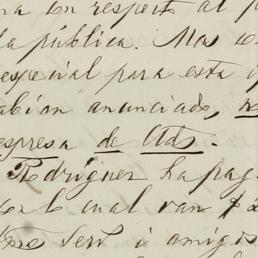 na con respeto al p
la pública. Mas co
especial para esta
abian anunciado,
espresa de Uds.
Rodriguez ha pag
por lo cual van $
serv i amigo